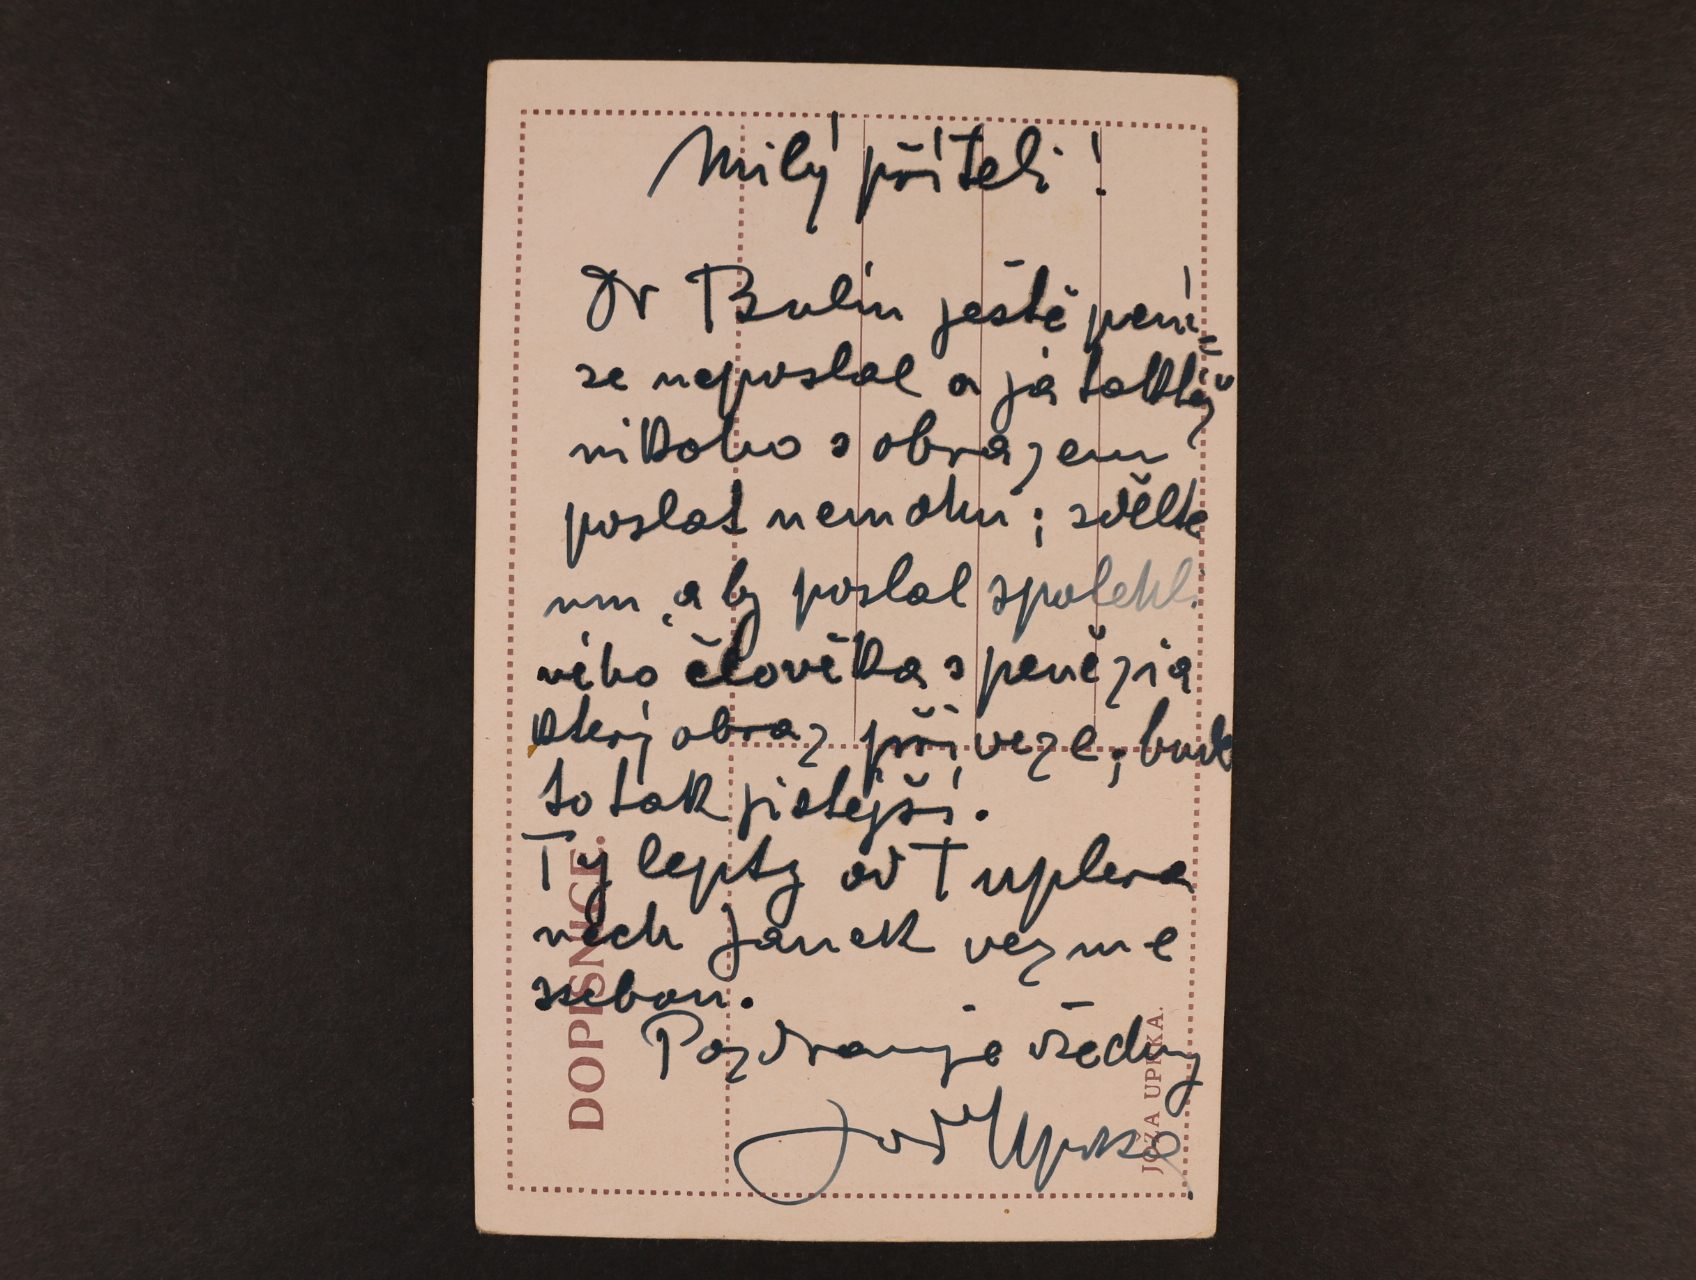 Milý příteli!
Dr Bulín ještě pení
ze neposlal a já taktéž
nikoho s obrazem
poslat nemohu; sdělte
mu, aby poslal spolehli
vého člověka s penězi a
který obraz přiveze; bude
to tak jistější.
Ty lepty od Tuplera
nech Janek vezme
ssebou.
Pozdravuje všechny
Jož Uprka
DOPISNICE.
JOŽA UPRKA.